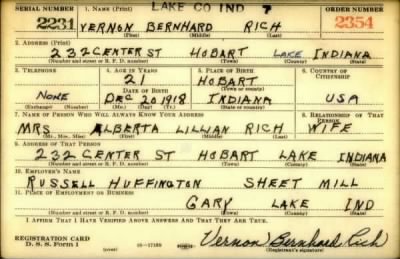 SERIAL NUMBER 1. NAME (Print) LAKE CO IND 7 ORDER NUMBER
2231 VERNON BERNHARD RICH 2354
(First) (Middle) (Last)
2. ADDRESS (Print)
232 CENTER ST HOBART LAKE INDIANA
(Number and street or R. F. D. number) (Town) (County) (State)
3. TELEPHONE 4. AGE IN YEARS 5. PLACE OF BIRTH 6. COUNTRY OF CITIZENSHIP
21 HOBART
DATE OF BIRTH (Town or county)
NONE DEC 20 1918 INDIANA USA
(Exchange) (Number) (Mo.) (Day) (Yr.) (State or country)
7. NAME OF PERSON WHO WILL ALWAYS KNOW YOUR ADDRESS 8. RELATIONSHIP OF THAT PERSON
MRS ALBERTA LILLIAN RICH WIFE
(Mr., Mrs., Miss) (First) (Middle) (Last)
9. ADDRESS OF THAT PERSON
232 CENTER ST HOBART LAKE INDIANA
(Number and street or R. F. D. number) (Town) (County) (State)
10. EMPLOYER'S NAME
RUSSELL HUFFINGTON SHEET MILL
11. PLACE OF EMPLOYMENT OR BUSINESS
GARY LAKE IND
(Number and street or R. F. D. number) (Town) (County) (State)
I AFFIRM THAT I HAVE VERIFIED ABOVE ANSWERS AND THAT THEY ARE TRUE.
REGISTRATION CARD
D. S. S. Form 1 (over) 16—17105 Vernon Bernhard Rich
(Registrant's signature)